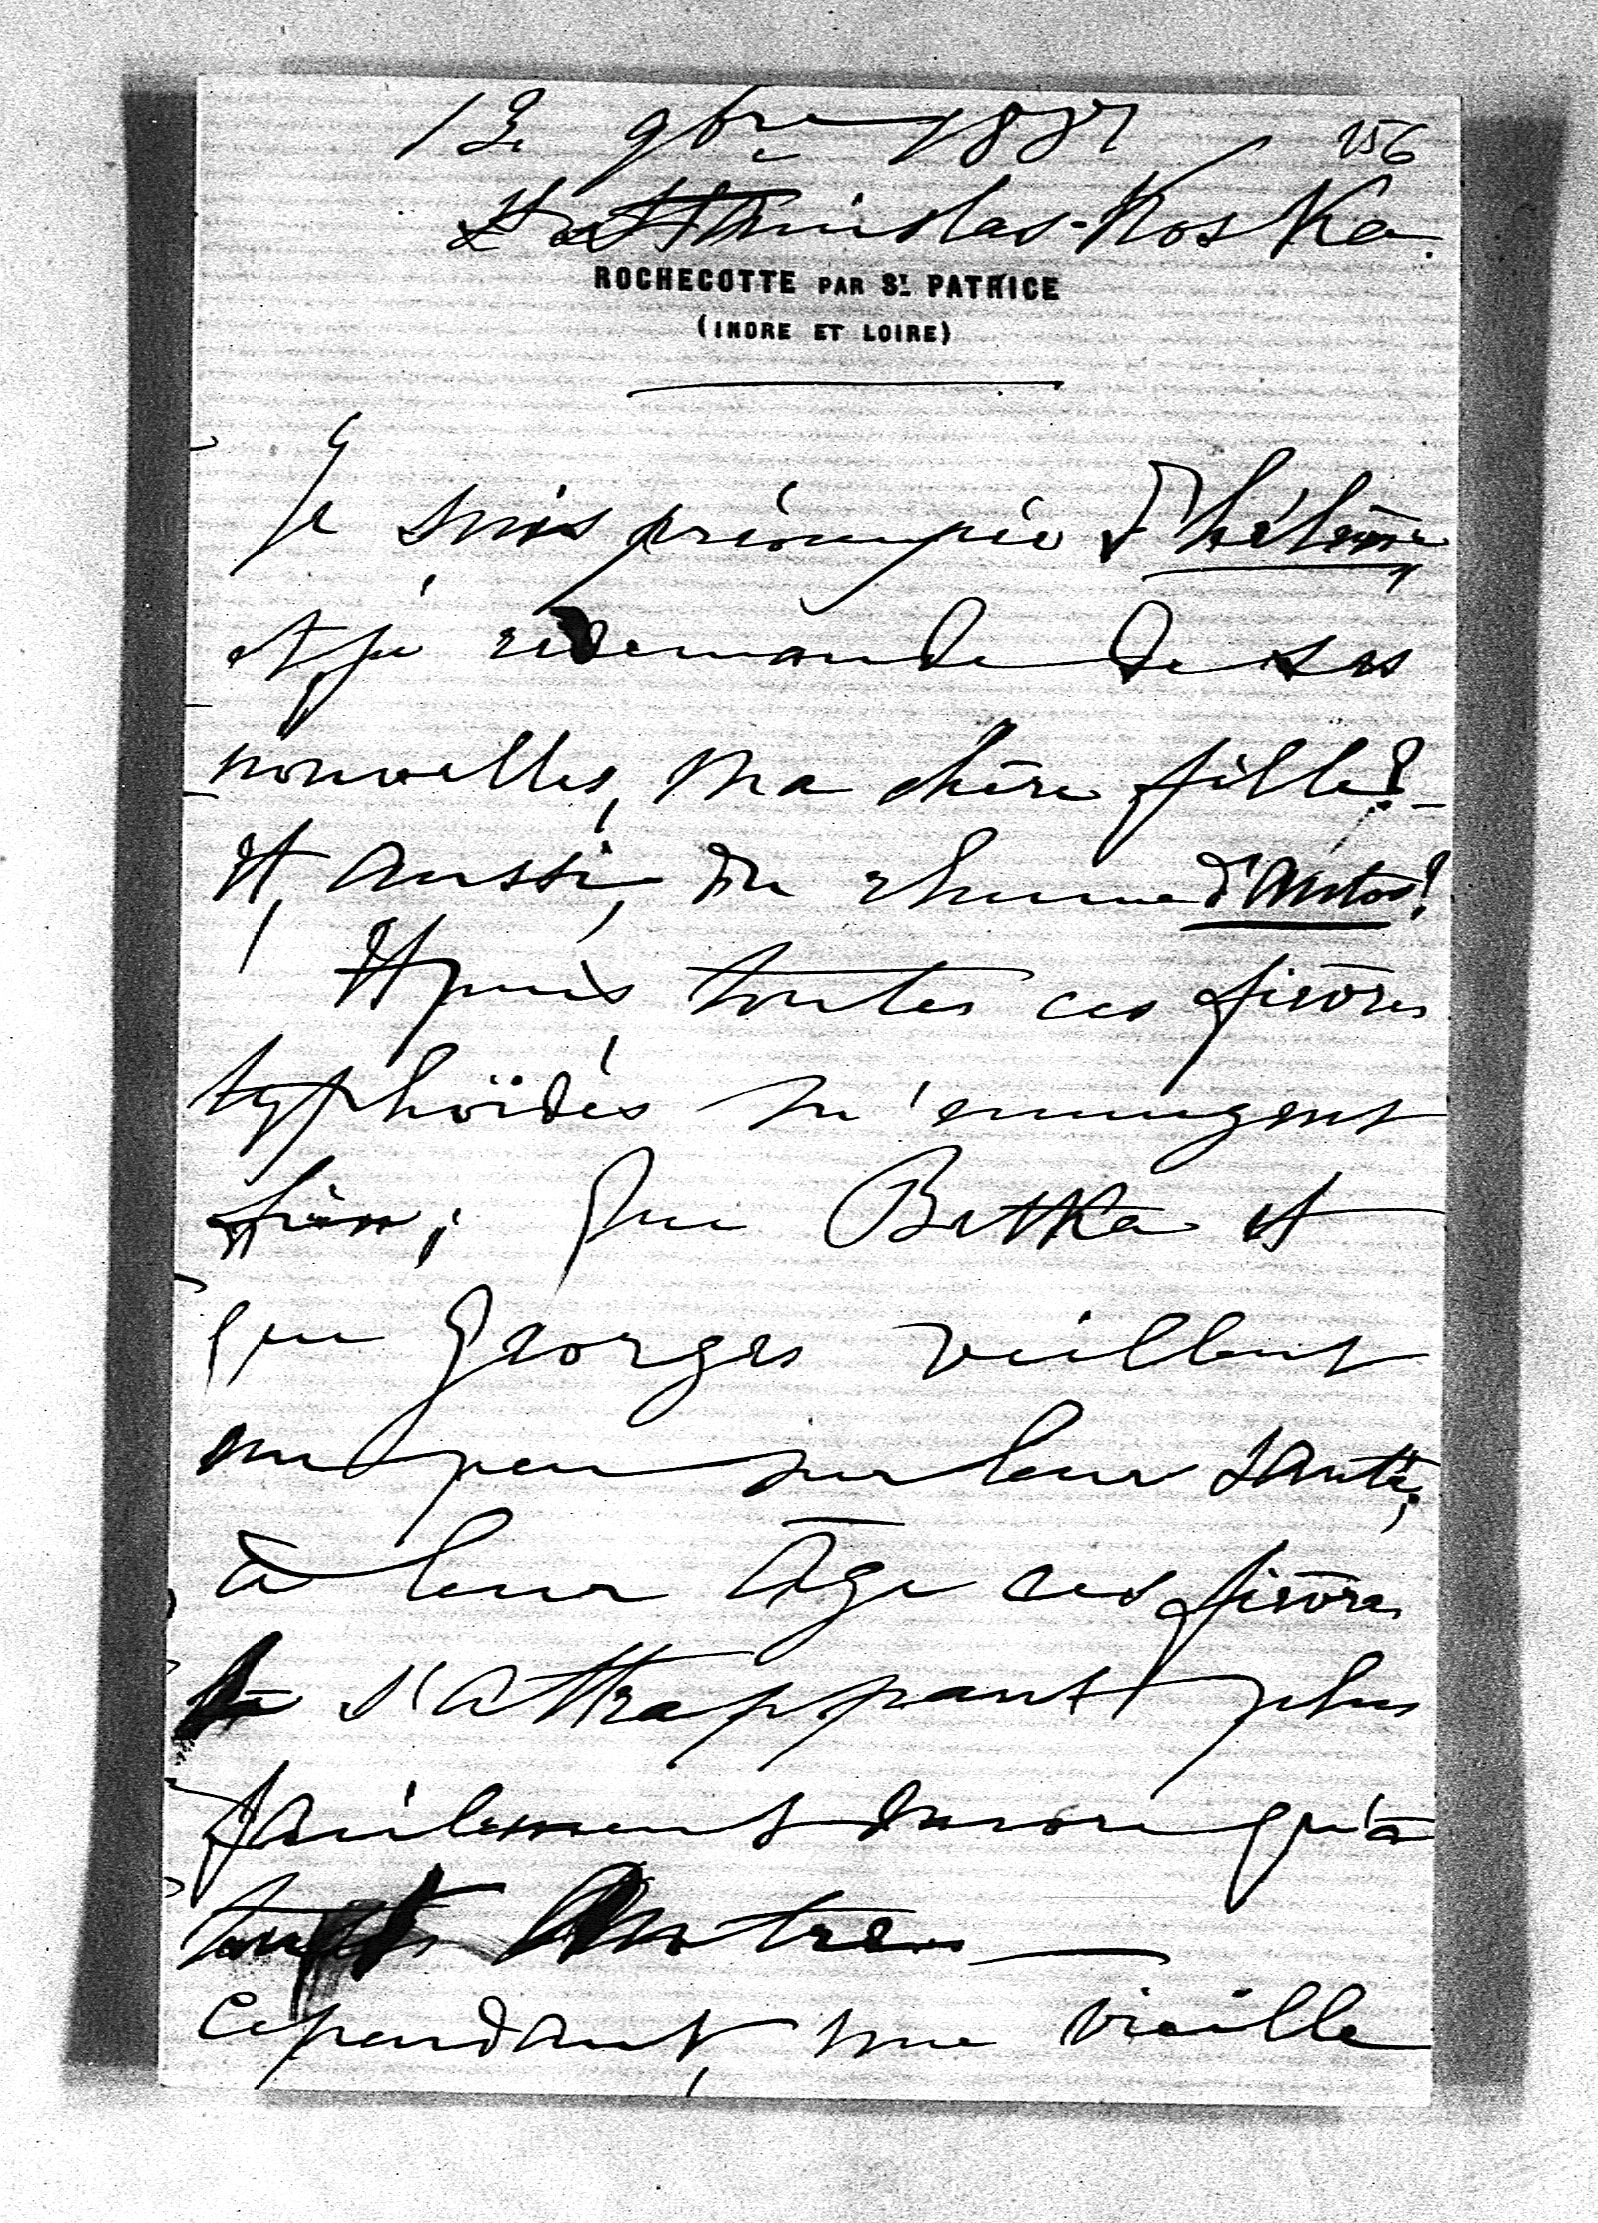 13 9bre 1887
156
St Stanislas-Kostka.
ROCHECOTTE PAR ST. PATRICE
(INDRE ET LOIRE)
Je suis préoccupée d'hélène
et je redemande de ses
nouvelles, ma chère fille?_
Et, aussi, du rhume d'Antos?
Et puis toutes ces fièvres
typhoïdes m'ennuyent
fièr; que Bethka et
que Georges veillent
un peu sur leur santé;
à leur âge ces fièvres
s'attrappant plus
facilement encore qu'à
autres —
Cependant, une vieille